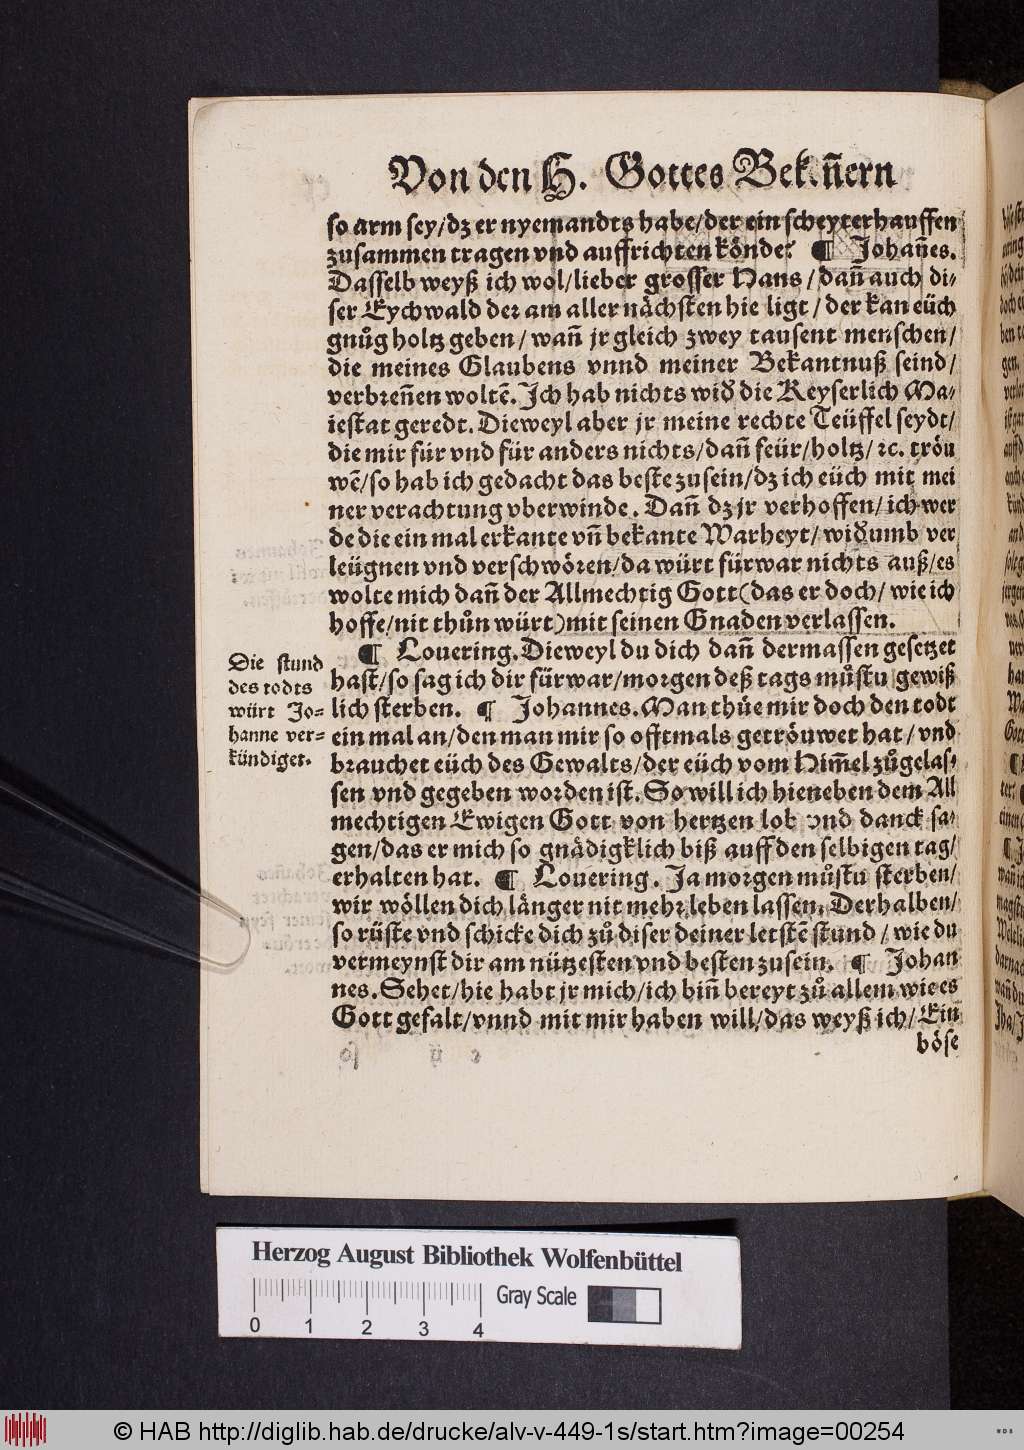 Von den H. Gottes Bekeñern
so arm sey/dz er nyemandts habe/der ein scheyterhauffen
zusammen tragen vnd auffrichten könde? ¶ Johañes.
Dasselb weyß ich wol/lieber grosser Hans/dañ auch di-
ser Eychwald der am aller nächsten hie ligt/der kan eüch
gnůg holtz geben/wañ jr gleich zwey tausent menschen/
die meines Glaubens vnnd meiner Bekantnuß seind/
verbreñen woltẽ. Ich hab nichts wid̕ die Keyserlich Ma-
iestat geredt. Dieweyl aber jr meine rechte Teüffel seydt/
die mir für vnd für anders nichts/dañ feür/holtz/ꝛc. tröu
wẽ/so hab ich gedacht das beste zusein/dz ich eüch mit mei
ner verachtung vberwinde. Dañ dz jr verhoffen/ich wer
de die ein mal erkante vñ bekante Warheyt/wid̕umb ver
leügnen vnd verschwören/da würt fürwar nichts auß/es
wolte mich dañ der Allmechtig Gott(das er doch/wie ich
hoffe/nit thůn würt)mit seinen Gnaden verlassen.
¶ Louering. Dieweyl du dich dañ dermassen gesetzet
hast/so sag ich dir fürwar/morgen deß tags můstu gewiß
lich sterben. ¶ Johannes. Man thüe mir doch den todt
ein mal an/den man mir so offtmals getröuwet hat/vnd
brauchet eüch des Gewalts/der eüch vom Him̃el zůgelas-
sen vnd gegeben worden ist. So will ich hieneben dem All
mechtigen Ewigen Gott von hertzen lob vnd danck sa-
gen/das er mich so gnädigklich biß auff den selbigen tag/
erhalten hat. ¶ Louering. Ja morgen můstu sterben/
wir wöllen dich länger nit mehr leben lassen. Derhalben/
so rüste vnd schicke dich zů diser deiner letstẽ stund/wie du
vermeynst dir am nützesten vnd besten zusein. ¶ Johan
nes. Sehet/hie habt jr mich/ich biñ bereyt zů allem wie es
Gott gefalt/vnnd mit mir haben will/das weyß ich/Ein
böse
Die stund
des todts
würt Jo-
hanne ver-
kündiget.
Herzog August Bibliothek Wolfenbüttel
0 1 2 3 4
Gray Scale
© HAB http://diglib.hab.de/drucke/alv-v-449-1s/start.htm?image=00254